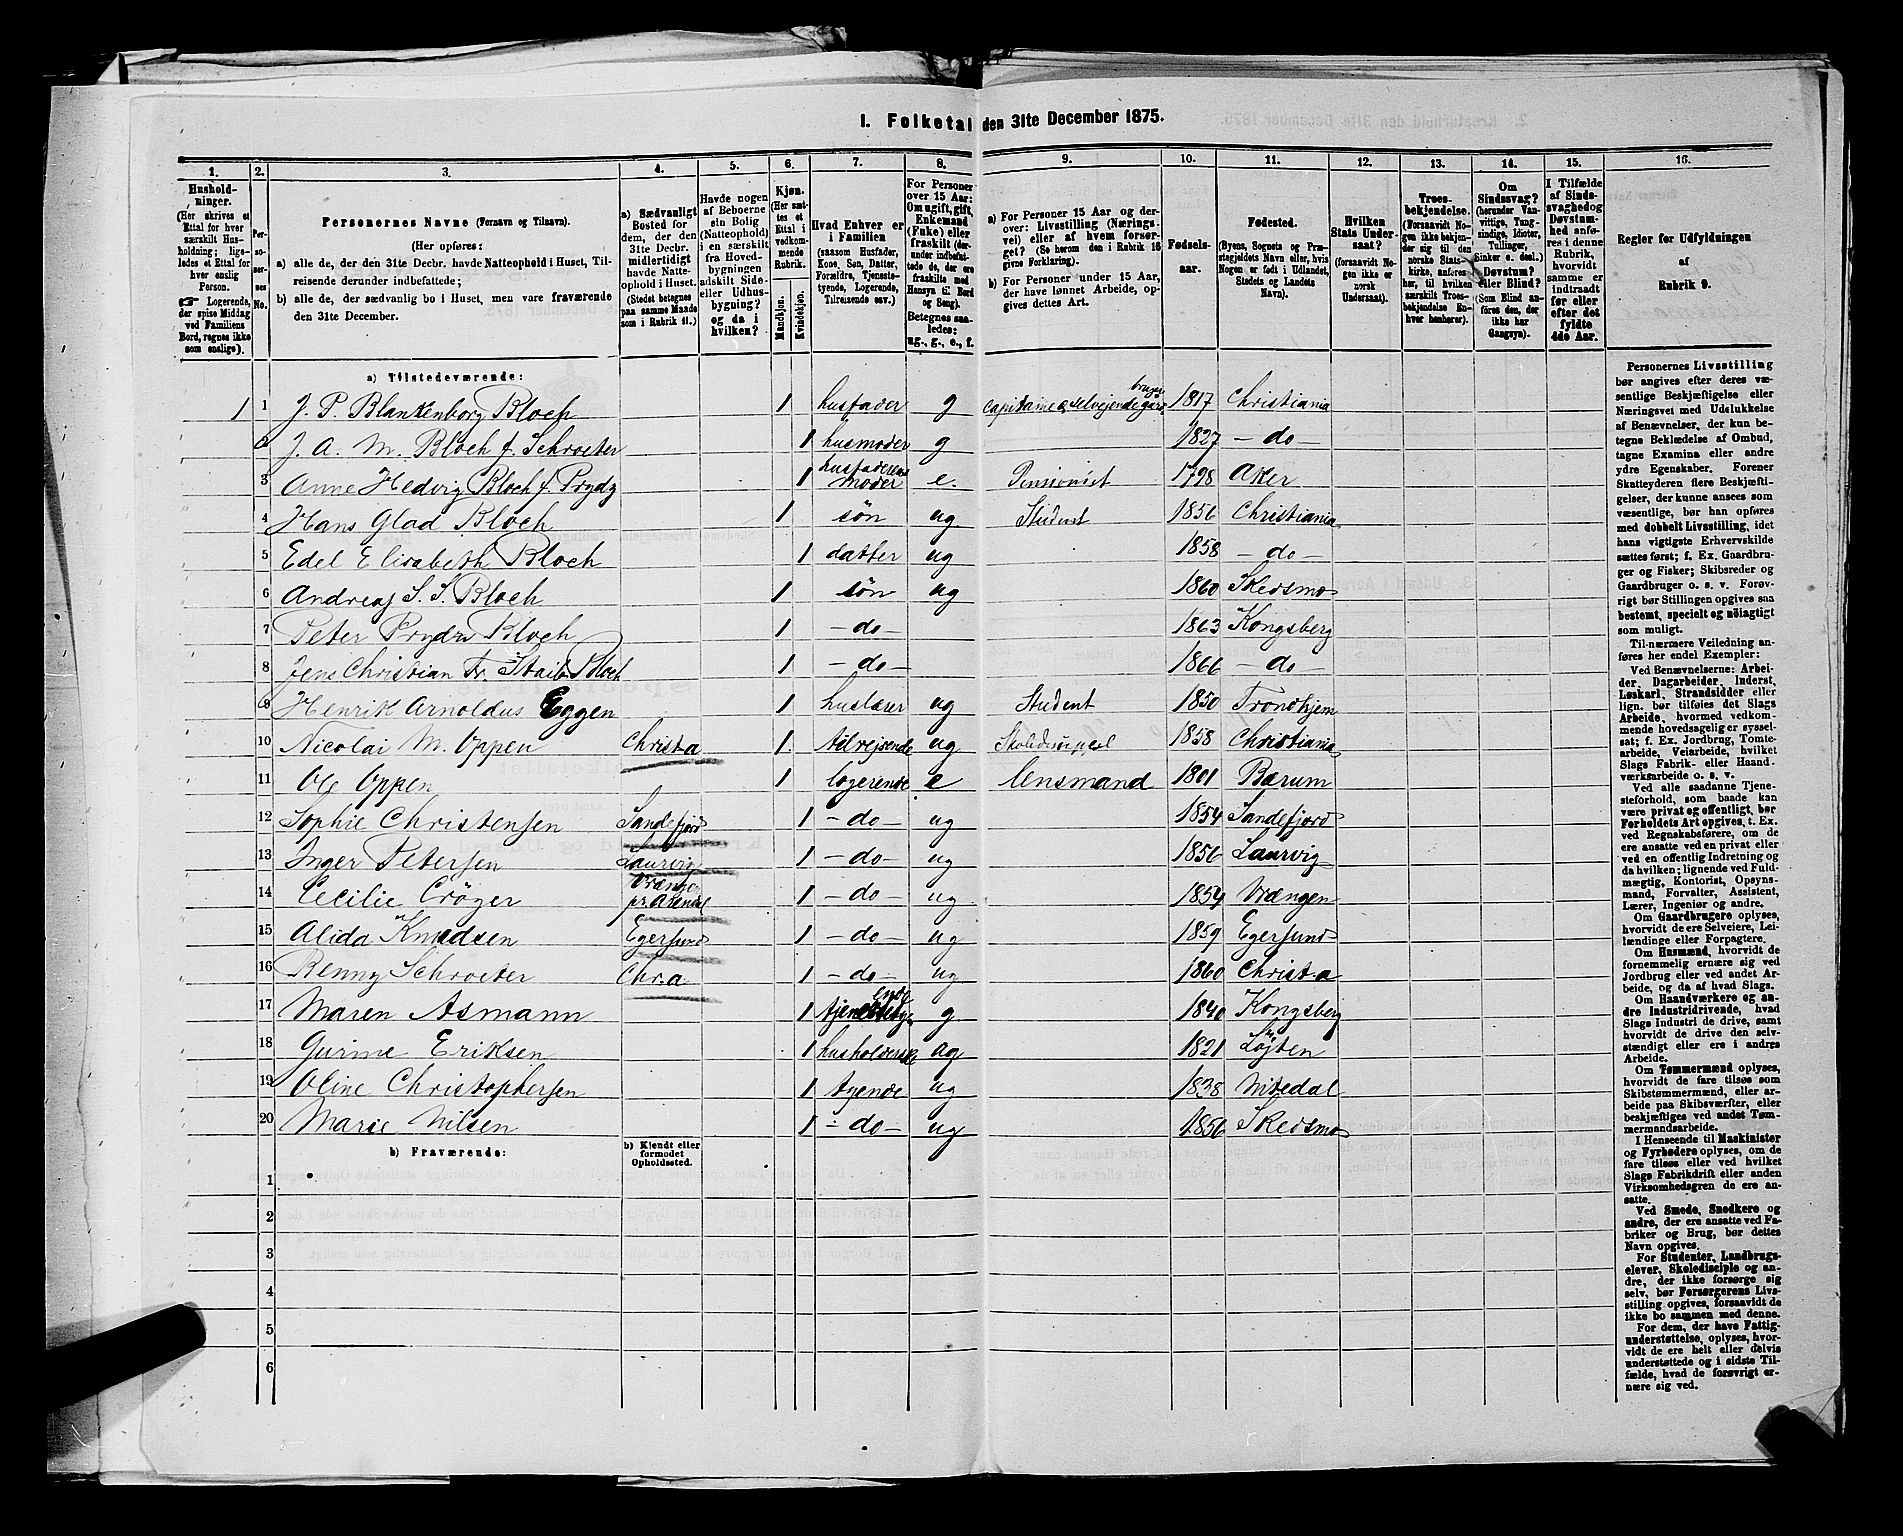 1. Folketal den 31te December 1875.
1. 2. 3. 4. 5. 6. 7. 8. 9. 10. 11. 12. 13. 14. 15. 16.
Hushold-
ninger.
(Her skrives et
Ettal for hver
særskilt Hus-
holdning; lige-
ledes et Ettal for
hver enslig
Person.
☞ Logerende,
der spise Middag
ved Familiens
Bord, regnes ikke
som enslige).
Personernes Navne (Fornavn og Tilnavn).
(Her opføres:
a) alle de, der den 31te Decbr. havde Natteophold i Huset, Til-
reisende derunder indbefattede;
b) alle de, der sædvanlig bo i Huset, men vare fraværende
den 31te December.
a) Sædvanligt
Bosted for
dem, der den
31te Decbr.
midlertidigt
havde Natte-
ophold i Huset.
(Stedet betegnes
paa samme Maade
som i Rubrik 11.)
Havde nogen
af Beboerne
sin Bolig
(Natteophold)
i en særskilt
fra Hoved-
bygningen
adskilt Side-
eller Udhus-
bygning?
og da i
hvilken?
Kjøn.
(Her sæt-
tes et
Ettal i
vedkom-
mende
Rubrik.
Mandkjøn.
Kvindekjøn.
Hvad Enhver er
i Familien
(saasom Husfader,
Kone, Søn, Datter,
Forældre, Tjeneste-
tyende, Logerende,
Tilreisende osv.)
For Personer
over 15 Aar:
Om ugift, gift,
Enkemand
(Enke) eller
fraskilt
Betegnes saa-
ledes:
ug., g., e., f.
a) For Personer 15 Aar og der-
over: Livsstilling (Nærings-
vei) eller af hvem forsør-
get? (Se herom den i Rubrik 16
givne Forklaring).
b) For Personer under 15 Aar,
der have lønnet Arbeide, op-
gives dettes Art.
Fødsels-
aar.
Fødested.
(Byens, Sognets og Præ-
stegjeldets Navn eller, hvis
Nogen er født i Udlandet,
Stedets og Landets
Navn).
Hvilken
Stats Under-
saat?
(forsaavidt No-
gen ikke er
norsk
Undersaat).
Troes-
bekjendelse.
(Forsaavidt No-
gen ikke bekjen-
der sig til den
norske Stats-
kirke, anføres
her, til hvilken
særskilt Troes-
bekjendelse En-
hver henhører).
Om
Sindssvag?
(herunder Van-
vittige, Tung-
sindige, Idioter,
Tullinger,
Sinker o. desl.)
Døvstum?
eller Blind?
(Som Blind an-
føres den, der
ikke har
Gangsyn).
I Tilfælde
af Sinds-
svaghed og
Døvstum-
hed anfø-
res i denne
Rubrik,
hvorvidt
samme er
indtraadt
før eller
efter det
fyldte
4de Aar.
Regler før Udfyldningen
af
Rubrik 9.
a) Tilstedeværende:
1 1 J. P. Blankenborg Bloch 1 husfader g capitaine & selvejende gård bruger 1817 Christiania
2 J. A. M. Bloch f. Schroeter 1 husmoder g 1827 – do –
3 Anne Hedvig Bloch f. Prydz 1 husfaderens moder e. Pensionist 1798 Aker
4 Hans Glad Bloch 1 søn ug Student 1856 Christiania
5 Edel Elisabeth Bloch 1 datter ug 1858 – do –
6 Andreas S. S. Bloch 1 søn ug 1860 Skedsmo
7 Peter Prydz Bloch 1 – do – 1863 Kongsberg
8 Jens Christian Fr. Bloch 1 – do – 1866 – do –
9 Henrik Arnoldus Eggen 1 huslærer ug Student 1850 Trondhjem
10 Nicolai M. Oppen Christ.a 1 tilrejsende ug Skoledisipel 1858 Christiania
11 Ole Oppen 1 logerende e lensmand 1801 Bærum
12 Sophie Christensen Sandefjord 1 – do – ug 1854 Sandefjord
13 Inger Petersen Laurvig 1 – do – ug 1856 Laurvig
14 Cecilie Crøger Vrængen pr. Arendal 1 – do – ug 1854 Vrængen
15 Alida Knudsen Egersund 1 – do – ug 1859 Egersund
16 Benny Schroeter Chr.a 1 – do – ug 1860 Christ.a
17 Maren Asmann 1 g 1840 Kongsberg
18 Gurine Eriksen 1 husholderske ug 1821 Løjten
19 Oline Christophersen 1 tyende ug 1838 Nitedal
20 Marie Nilsen 1 – do – ug 1856 Skedsmo
b) Fraværende:
b) Kjendt eller
formodet
Opholdssted.
1
2
3
4
5
6
Personernes Livsstilling
bør angives efter deres væ-
sentlige Beskjæftigelse eller
Næringsvei med Udelukkelse
af Benævnelser, der kun be-
tegne Beklædelse af Ombud,
tagne Examina eller andre
ydre Egenskaber. Forener
Skatteyderen flere Beskjæfti-
gelser, der kunne ansees som
væsentlige, bør han opføres
med dobbelt Livsstilling, idet
hans vigtigste Erhvervskilde
sættes først; f. Ex. Gaardbru-
ger og Fisker; Skibsreder og
Gaardbruger o. s. v. Forøv-
rigt bør Stillingen opgives saa
bestemt, specielt og nöiagtigt
som muligt.
Til nærmere Veiledning an-
føres her endel Exempler:
Ved Benævnelserne: Arbei-
der, Dagarbeider, Inderst,
Løskarl, Strandsidder eller
lign. bør tilføies det Slags
Arbeide, hvormed vedkom-
mende hovedsagelig er syssel-
sat; f. Ex. Jordbrug, Tomte-
arbeide, Veiarbeide, hvilket
Slags Fabrik- eller Haand-
værksarbeide o. s. v.
Ved alle saadanne Tjene-
steforhold, som baade kan
være privat og offentligt, bør
Forholdets Art opgives, t. Ex.
ved Regnskabsførere, om de
ere ansatte ved en privat eller
ved en offentlig Indretning og
da hvilken; lignende ved Fuld-
mægtig, Kontorist, Opsyns-
mand, Forvalter, Assistent,
Lærer, Ingeniør og andre.
Om Gaardbrugere oplyses,
hvorvidt de ere Selveiere, Lei-
lændinge eller Forpagtere.
Om Husmænd, hvorvidt de
fornemmelig ernære sig ved
Jordbrug eller ved andet Ar-
beide, og da af hvad Slags.
Om Haandværkere og an-
dre Industridrivende, hvad
Slags Industri de drive, samt
hvorvidt de drive den selv-
stændigt eller ere i andres
Arbeide.
Om Tømmermænd oplyses,
hvorvidt de fare tilsøs som
Skibstømmermænd, eller ar-
beide paa Skibsværfter, eller
beskjæftiges ved andet Tøm-
mermandsarbeide.
I Henseende til Maskinister
og Fyrbødere oplyses, om de
fare tilsøs eller ved hvilket
Slags Fabrikdrift eller anden
Virksomhedsgren de ere an-
satte.
Ved Smede, Snedkere og
andre, der ere ansatte ved Fa-
briker og Brug, bør dettes
Navn opgives.
For Studenter, Landbrugs-
elever, Skoledisciple og an-
dre, der ikke forsørge sig
selv, bør Forsørgerens Livs-
stilling opgives, forsaavidt de
ikke bo sammen med denne.
For dem, der have Fattig-
understøttelse, oplyses, hvor-
vidt de ere helt eller delvis
understøttede og i sidste Til-
fælde, hvad de forøvrigt er-
nære sig ved.